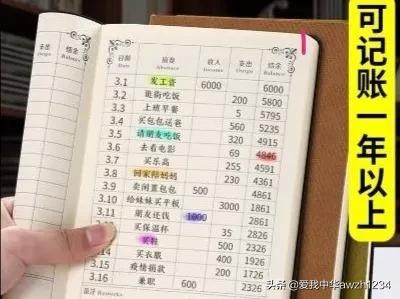 可记账一年以上
支出 结余 日期 摘要 收入 支出 结余
Balance Date Abstract Income Balance
3.1 发工资 6000 6000
3.2 逛街吃饭 200 5800
3.3 上班早餐 5 5795
3.4 买包包送爸 560 5235
3.5 请朋友吃饭 320 4915
3.6 去看电影 69 4846
3.7 买乐高 255 4591
3.8 回家陪妈妈 230 4361
3.9 卖闲置包包 500 4861
3.10 给妹妹买平板 3000 1861
3.11 朋友还钱 1000 2861
买保温杯 35 2826
买鞋 500 2326
3.14 买衣服 400 1926
3.15 疫情捐款 200 1726
3.16 兼职 600 2326
备注 Remarks
头条 @爱我中华awzh1234